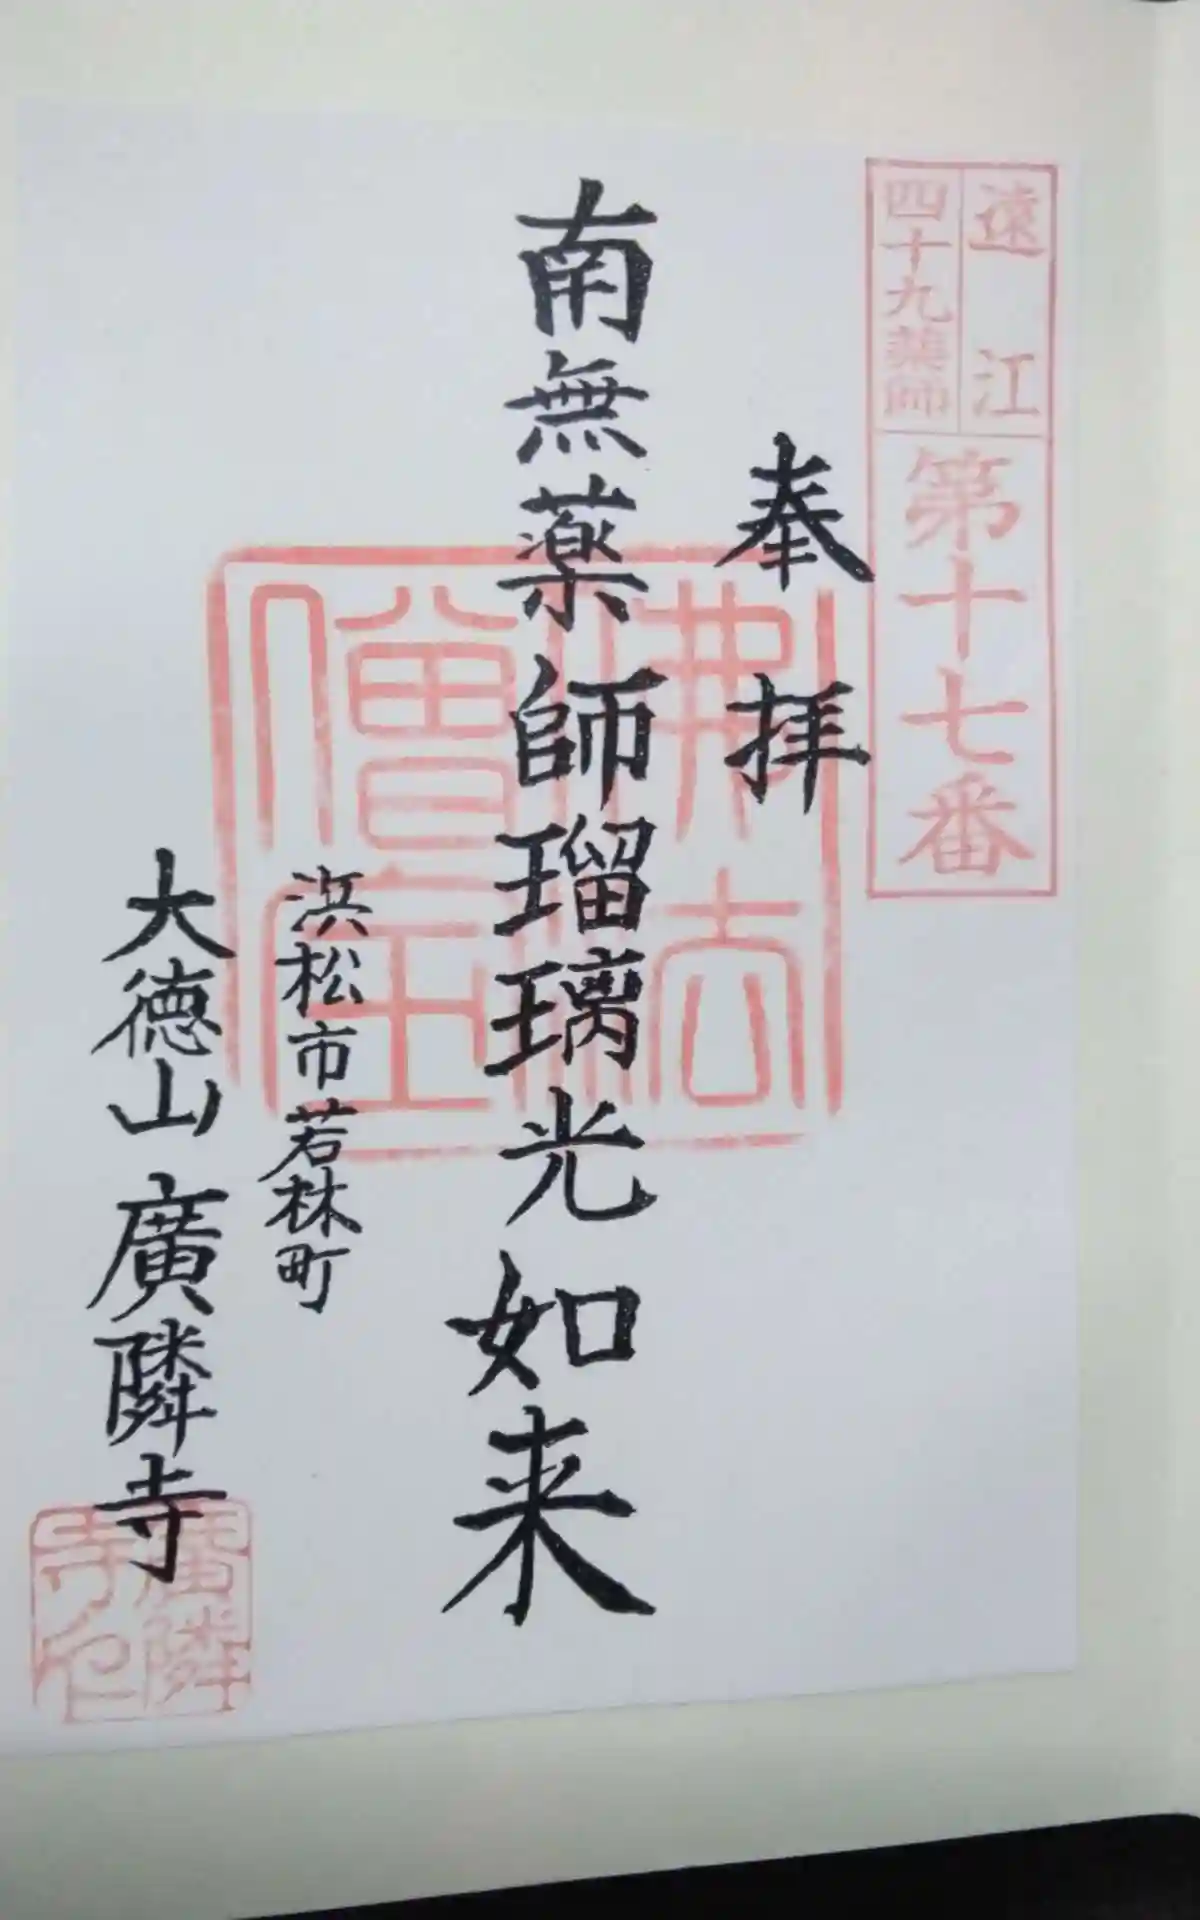 遠江
四十九薬師
第十七番
奉拝
南無薬師瑠璃光如来
佛法僧宝
浜松市若林町
大徳山廣隣寺
廣隣寺印